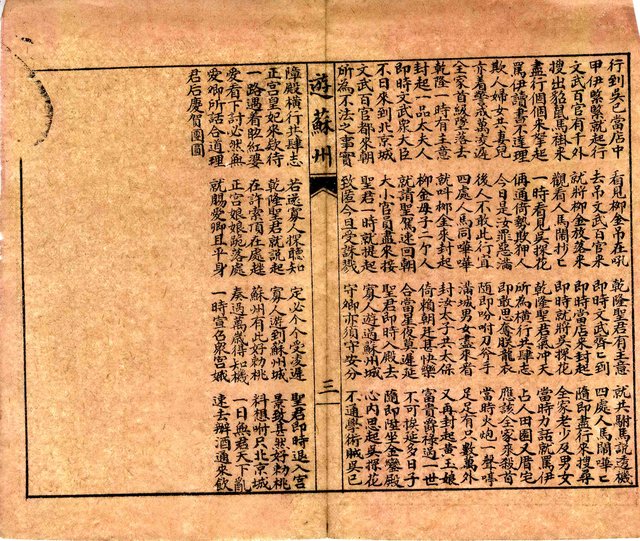 行到吳己當店中 看見柳金吊在吼 乾隆聖君有主意 就共駙馬說透機
甲伊縏縏就起行 去吊文武百官來 即時文武齊匕到 四處人馬鬧嘩匕
文武百官有千外 就將柳金放落來 即時當店來封起 隨即盡行來搜尋
搜出貂鼠馬褂來 觀看人馬鬧抄匕 即時就將吳探花 全家老少及男女
盡行個個來搴起 一時看見吳探花 乾隆聖君氣冲天 當時力話就罵伊
罵伊讀書不達理 侢通倚勢欺狎人 所為橫行共肆志 占人田園又厝宅
欺人婦女共妻兒 今日是汝罪惡滿 即敢思奪朕龍衣 應該全家來殺首
亦着警戒萬凌遲 後人不敢此行宜 隨即吩咐刀斧手 當時火炮一聲嗚
全家首級墜落去 四處人馬同嘩嘩 滿城男女盡來看 足足有只數萬外
乾隆一時有主意 就叫柳金來封起 封汝太子共太保 又再封起黃玉娘
封起一品太夫人 柳金母子二个人 倚賴朝廷甚快樂 富貴爵祿過一世
即時文武衆大臣 就請聖駕速回朝 合當星夜莫遲延 不可挨延多日子
不日來到北京城 大小官員盡來接 聖君即時入殿去 隨即陞坐金鑾殿
文武百官都來朝 聖君一時就提起 寡人遊過蘇州城 心內思起吳探花
所為不法之事實 致今旦受誅戮 守鄉亦須守安分 不通學術賊吳己
遊蘇州 三
障殿橫行共肆志 若返寡人探聽知 定必个今受凌遲 聖君即時退入宮
正宮皇妃來啟待 乾隆聖君就說起 寡人遊到蘇州城 景致甚然好勅桃
一路遇着晄紅婆 在許索頂在處趖 蘇州有此好勅桃 料想咐只北京城
愛看下討必然無 正宮娘娘跪落處 奏過萬歲得知機 一日無君天下亂
愛卿所話合道理 就賜愛卿且平身 一時宣召衆宮娥 速去辦酒通來飲
君后慶賀團圓